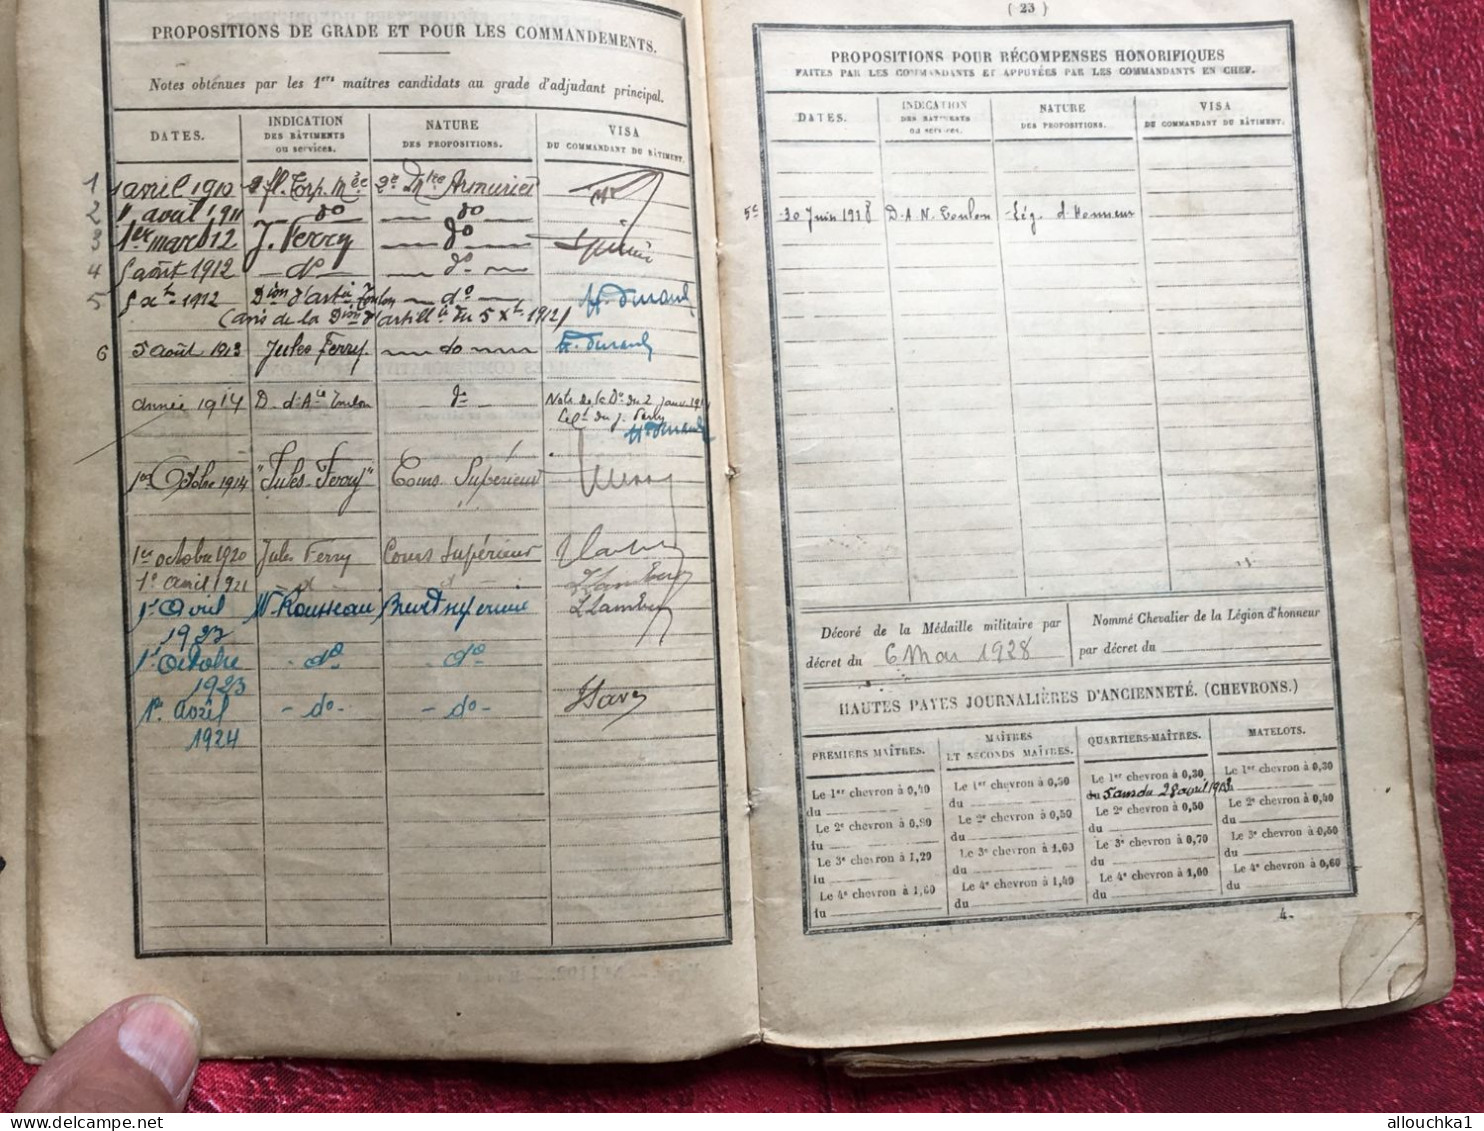 PROPOSITIONS DE GRADE ET POUR LES COMMANDEMENTS.
Notes obtenues par les 1ers maîtres candidats au grade d'adjudant principal.
DATES.
INDICATION DES BÂTIMENTS ou services.
NATURE DES PROPOSITIONS.
VISA DU COMMANDANT DU BÂTIMENT.
1 1 avril 1910 2e Mtre Armurier
2 " avril 1911 do do
3 1er mars 12 J. Ferry do
4 5 août 1912 do do
5 5 Xbre 1912 Dion d'Artie Toulon do
(avis de la Dion d'artillie du 5 Xbre 1912)
6 5 août 1913 Jules Ferry do
année 1914 D. d'Aie Toulon do
1er Octobre 1914 "Jules Ferry" Cours Supérieur
1er octobre 1920 Jules Ferry Cours Supérieur
1er avril 1921
1er Avril W. Rousseau Brevet supérieur
1923
1er Octobre do do
1923
1er avril do do
1924
( 23 )
PROPOSITIONS POUR RÉCOMPENSES HONORIFIQUES
FAITES PAR LES COMMANDANTS ET APPUYÉES PAR LES COMMANDANTS EN CHEF.
DATES.
INDICATION DES BÂTIMENTS ou services.
NATURE DES PROPOSITIONS.
VISA DU COMMANDANT DU BÂTIMENT.
30 Juin 1918 D.A.N. Toulon Lég. d'Honneur
Décoré de la Médaille militaire par
décret du 6 Mai 1928
Nommé Chevalier de la Légion d'honneur
par décret du
HAUTES PAYES JOURNALIÈRES D'ANCIENNETÉ. (CHEVRONS.)
PREMIERS MAÎTRES.
Le 1er chevron à 0,40
du
Le 2e chevron à 0,80
du
Le 3e chevron à 1,20
du
Le 4e chevron à 1,60
du
MAÎTRES ET SECONDS MAÎTRES.
Le 1er chevron à 0,30
du
Le 2e chevron à 0,50
du
Le 3e chevron à 1,00
du
Le 4e chevron à 1,40
du
QUARTIERS-MAÎTRES.
Le 1er chevron à 0,30
du 5 ans du 28 avril 1908
Le 2e chevron à 0,50
du
Le 3e chevron à 0,70
du
Le 4e chevron à 1,00
du
MATELOTS.
Le 1er chevron à 0,30
Le 2e chevron à 0,40
du
Le 3e chevron à 0,50
du
Le 4e chevron à 0,60
du
4.
allouchka1